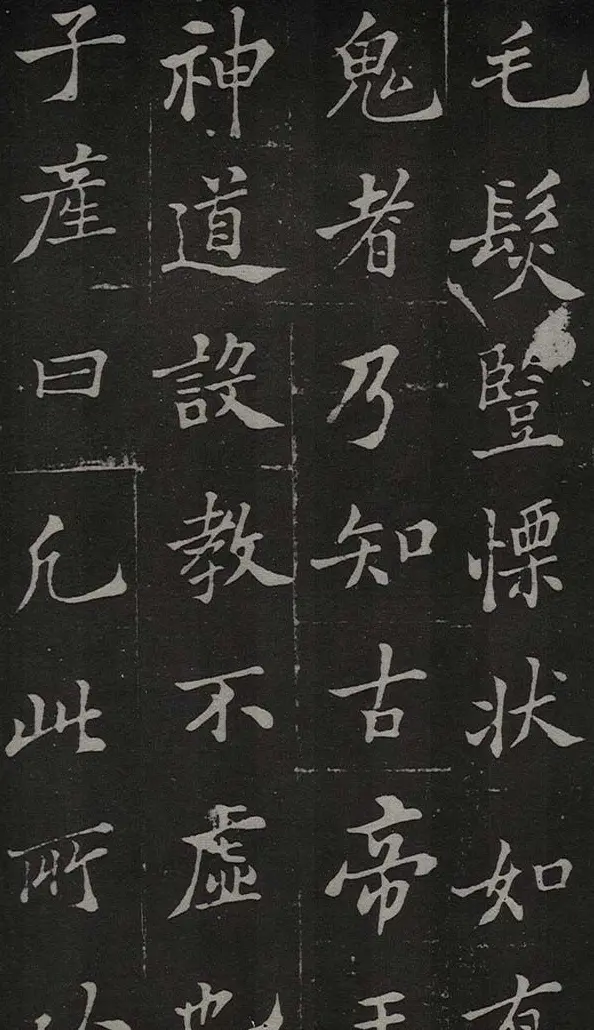 毛髮豎慄狀如有
鬼者乃知古帝王
神道設教不虛也
子產曰凡此所以